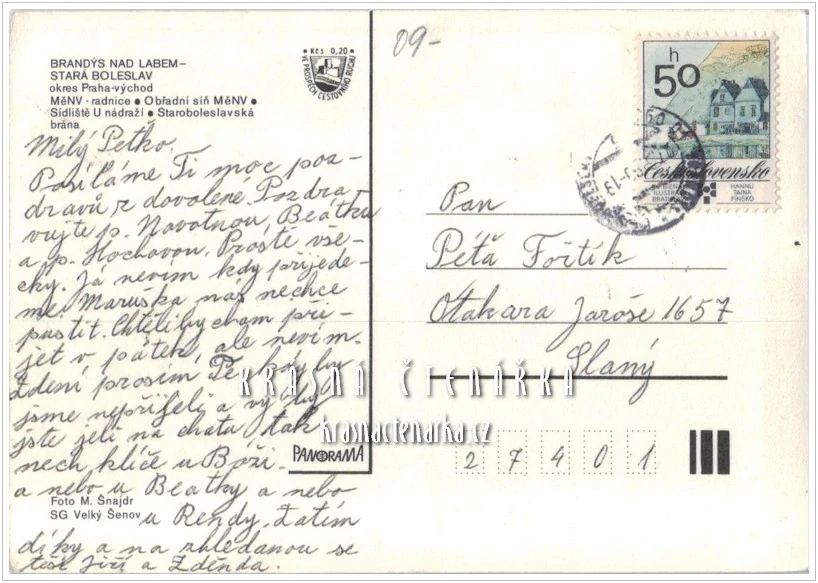 BRANDÝS NAD LABEM–
STARÁ BOLESLAV
okres Praha-východ
MěNV - radnice ● Obřadní síň MěNV ●
Sídliště U nádraží ● Staroboleslavská
brána
Kčs 0,20
VE PROSPĚCH CESTOVNÍHO RUCHU
09-
h
50
Československo
HANNU
TAINA
FINSKO
Milý Peťko.
Posíláme Ti moc poz-
dravů z dovolené. Pozdra-
vujte p. Navotnou, Beátku
a p. Hochavou. Prostě vše-
cky. Já nevim kdy přijede-
me. Maruška nás nechce
pustit. Chtěli by cham při-
jet v pátek, ale nevím.
Zdení prosím Tě, kdy by
jsme nepřijeli a vy by
jste jeli na chatu tak
nech klíče u Boži.
a nebo u Beatky a nebo
u Rendy. Zatím
díky a na zhledanou se
těší Jiří a Zděnda.
Foto M. Šnajdr
SG Velký Šenov
PANORAMA
Pan
Péťa Fořtík
Otakara Jaroše 1657
Slaný
27401
KRÁSNÁ ČTENÁŘKA
krasnactenarka.cz